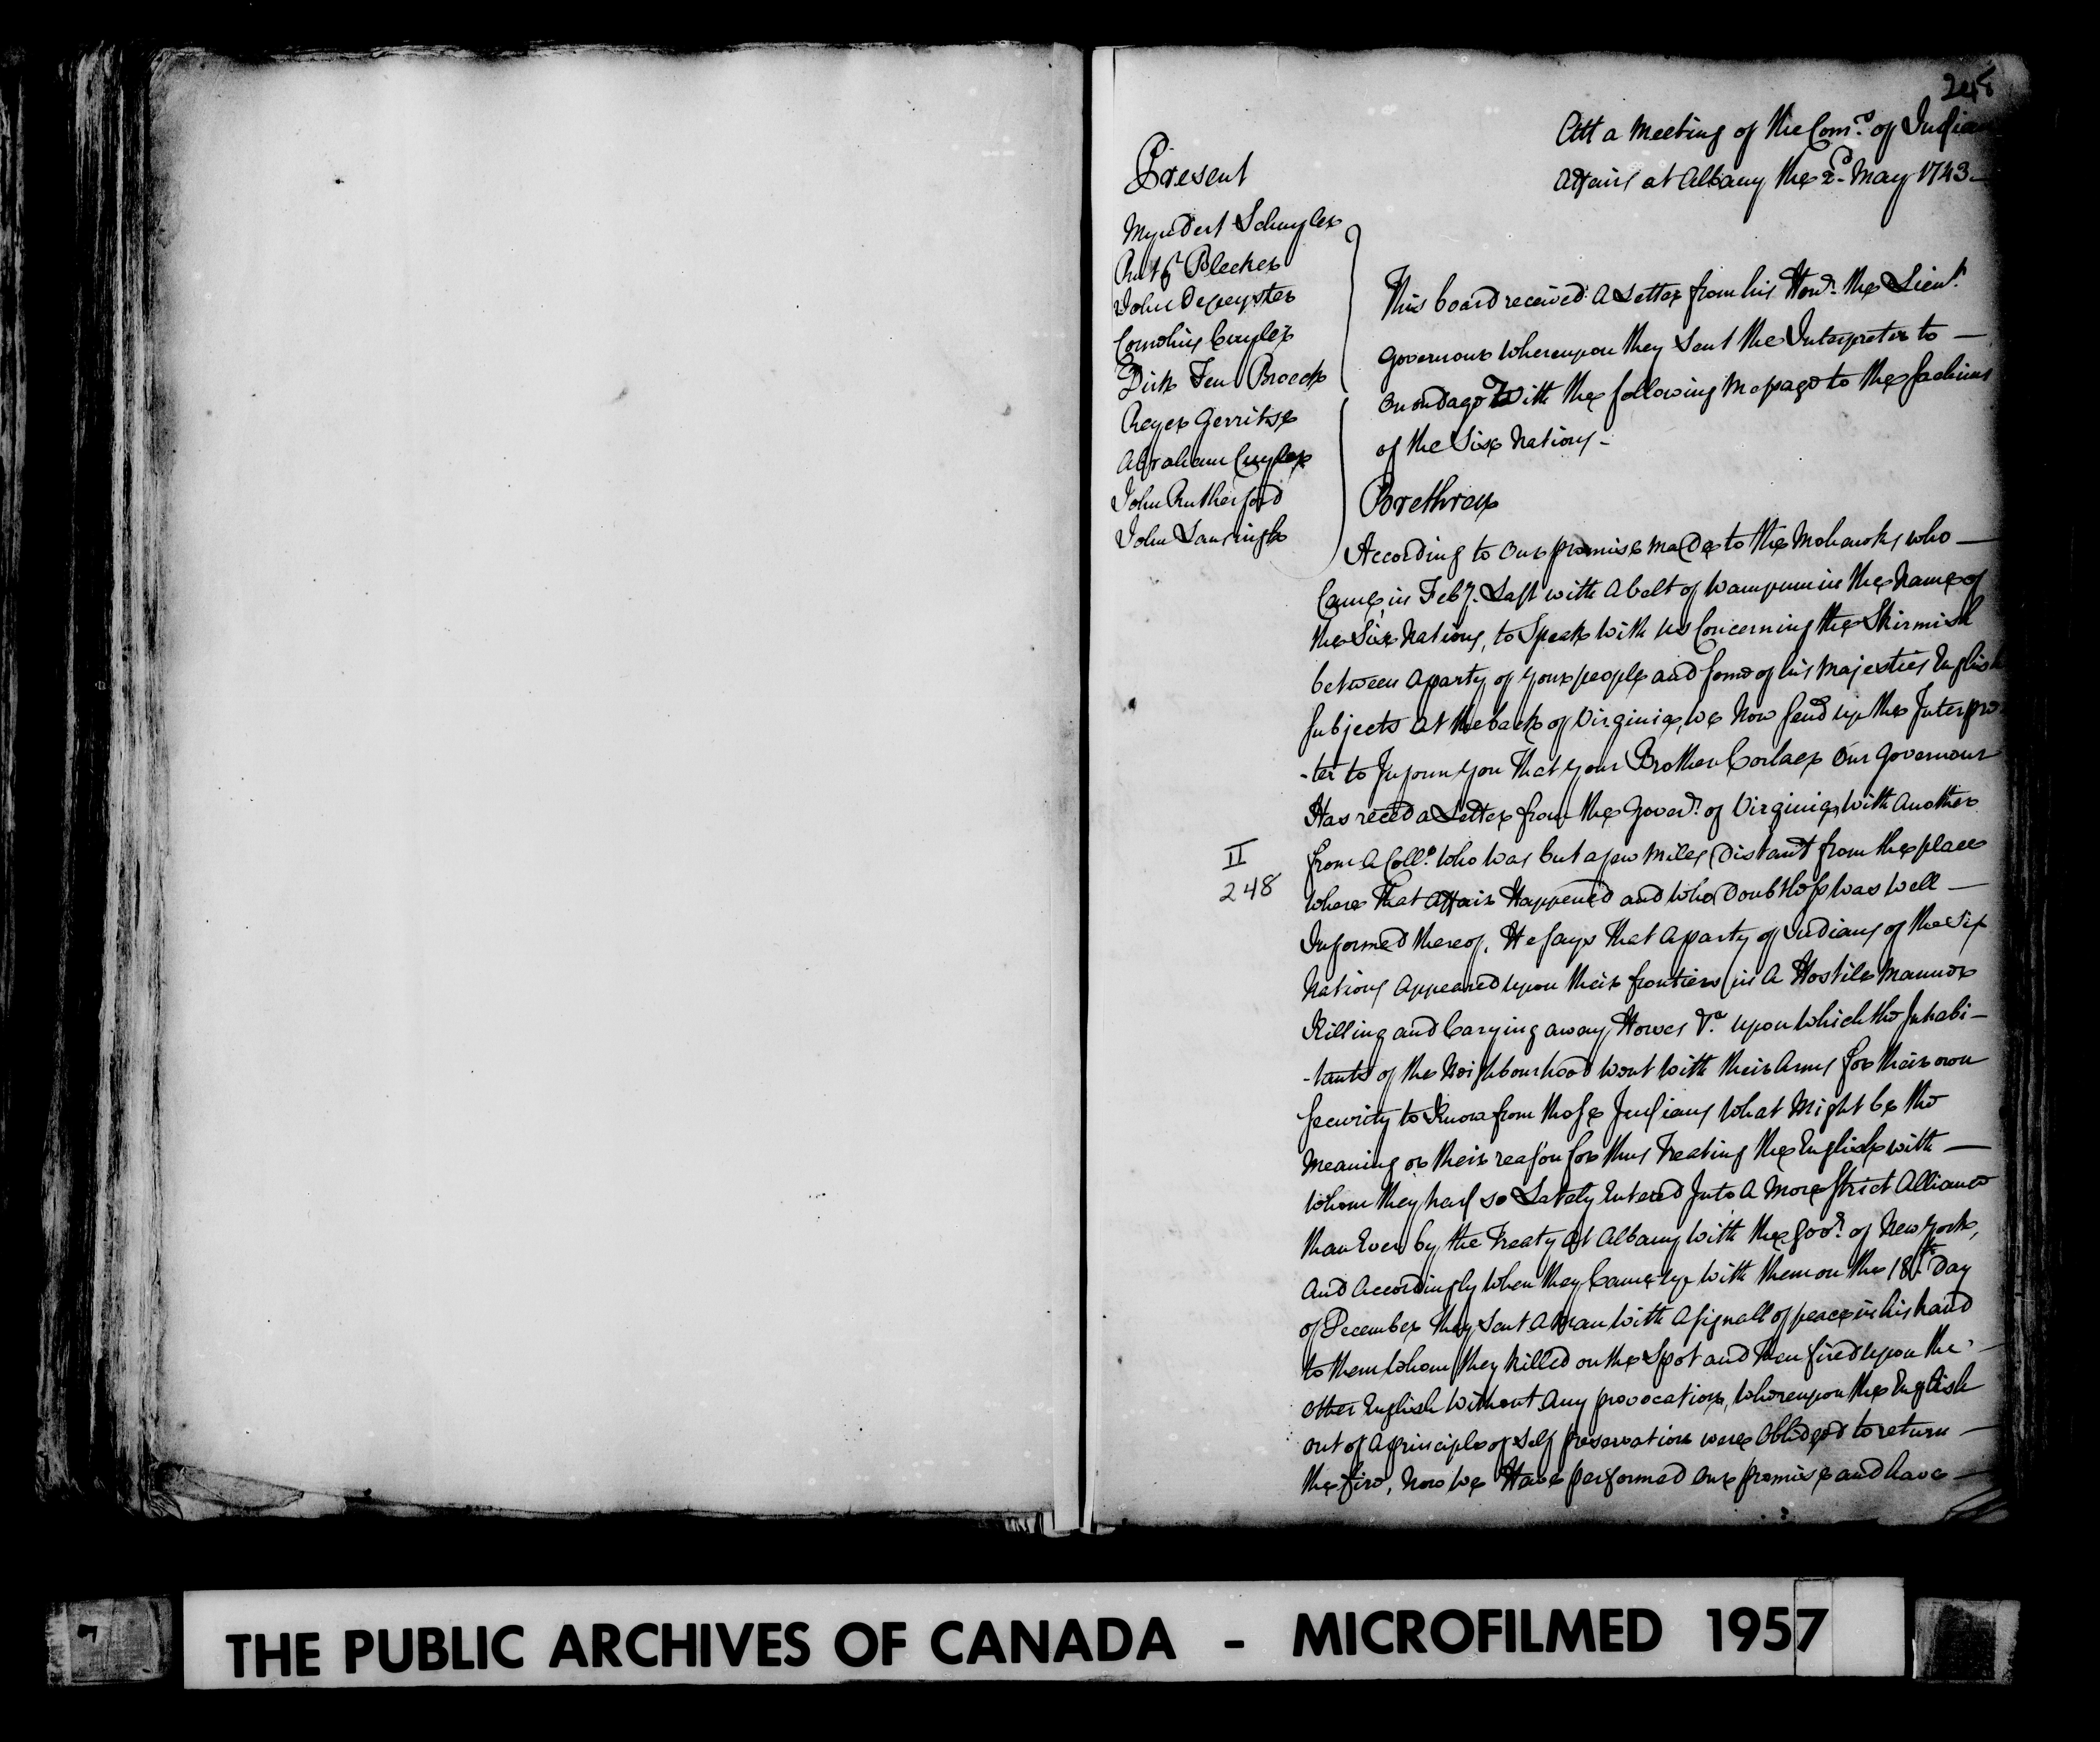 248
Att a Meeting of the Com.rs of Indian
Affairs at Albany the 2.d May 1743—
Present
Myndert Schuyler
Rutg.r Bleeker
John Depeyster
Cornelius Cuyler
Dirk Ten Broeck
Reyer Gerritse
Abraham Cuyler
John Rutherford
John Lansingh
This board received a Letter from his Hon.r the Lieut.
Governour whereupon they Sent the Interpreter to —
Onondago With the following Message to the Sachims
of the Six Nations—
Brethren
According to Our promise made to the Mohawks who —
Came in Feb.y Last with a belt of Wampum in the Name of
the Six Nations, to Speak with us Concerning the Skirmish
between a party of your people and some of his Majesties English
Subjects at the back of Virginia, we Now send up the Interpre
-ter to Inform you That your Brother Corlaer Our Governour
Has reced a Letter from the Gover.r of Virginia, with Another
from A Coll.o Who was but a few Miles Distant from the place
II
248
where that Affair Happened and who Doubtless was well —
Informed thereof, He says that a party of Indians of the Six
Nations Appeared upon their frontiers in A Hostile Manner
Killing and Carying away Horses &.a upon which the Inhabi—
-tants of the Neighbourhood went with their Arms for their own
Security to Know from those Indians what Might be the
Meaning or their reason for thus Treating the English with —
whom they had so Lately Entered Into A More strict Alliance
than Ever by the Treaty At Albany with the Gov.r of New York,
And Accordingly when they Came up with them on the 18.th Day
of December they Sent A Man with A signall of peace in his hand
to them whom they Killed on the Spot and then fired upon the —
other English Without Any provocation, whereupon the English
out of A principle of Self preservation were Obliedged to return —
the fire, Now we Have performed our promise and have —
THE PUBLIC ARCHIVES OF CANADA - MICROFILMED 1957